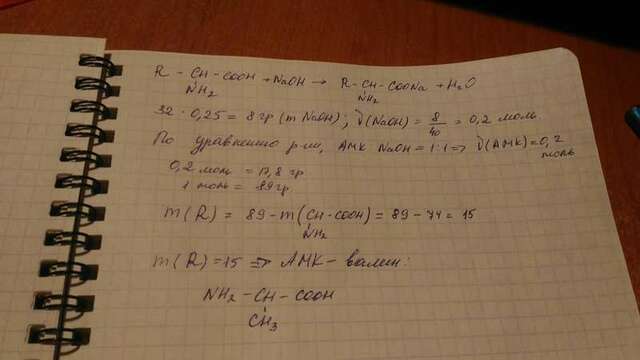 R - CH - COOH + NaOH → R - CH - COONa + H₂O
NH₂ NH₂
32 · 0,25 = 8 гр (m NaOH); ν(NaOH) = 8/40 = 0,2 моль
По уравнению р-ии, АМК NaOH = 1:1 => ν(АМК) = 0,2 моль
0,2 моль = 17,8 гр
1 моль = 89 гр.
m(R) = 89 - m(CH - COOH) = 89 - 74 = 15
NH₂
m(R) = 15 => АМК - валин:
NH₂ - CH - COOH
CH₃